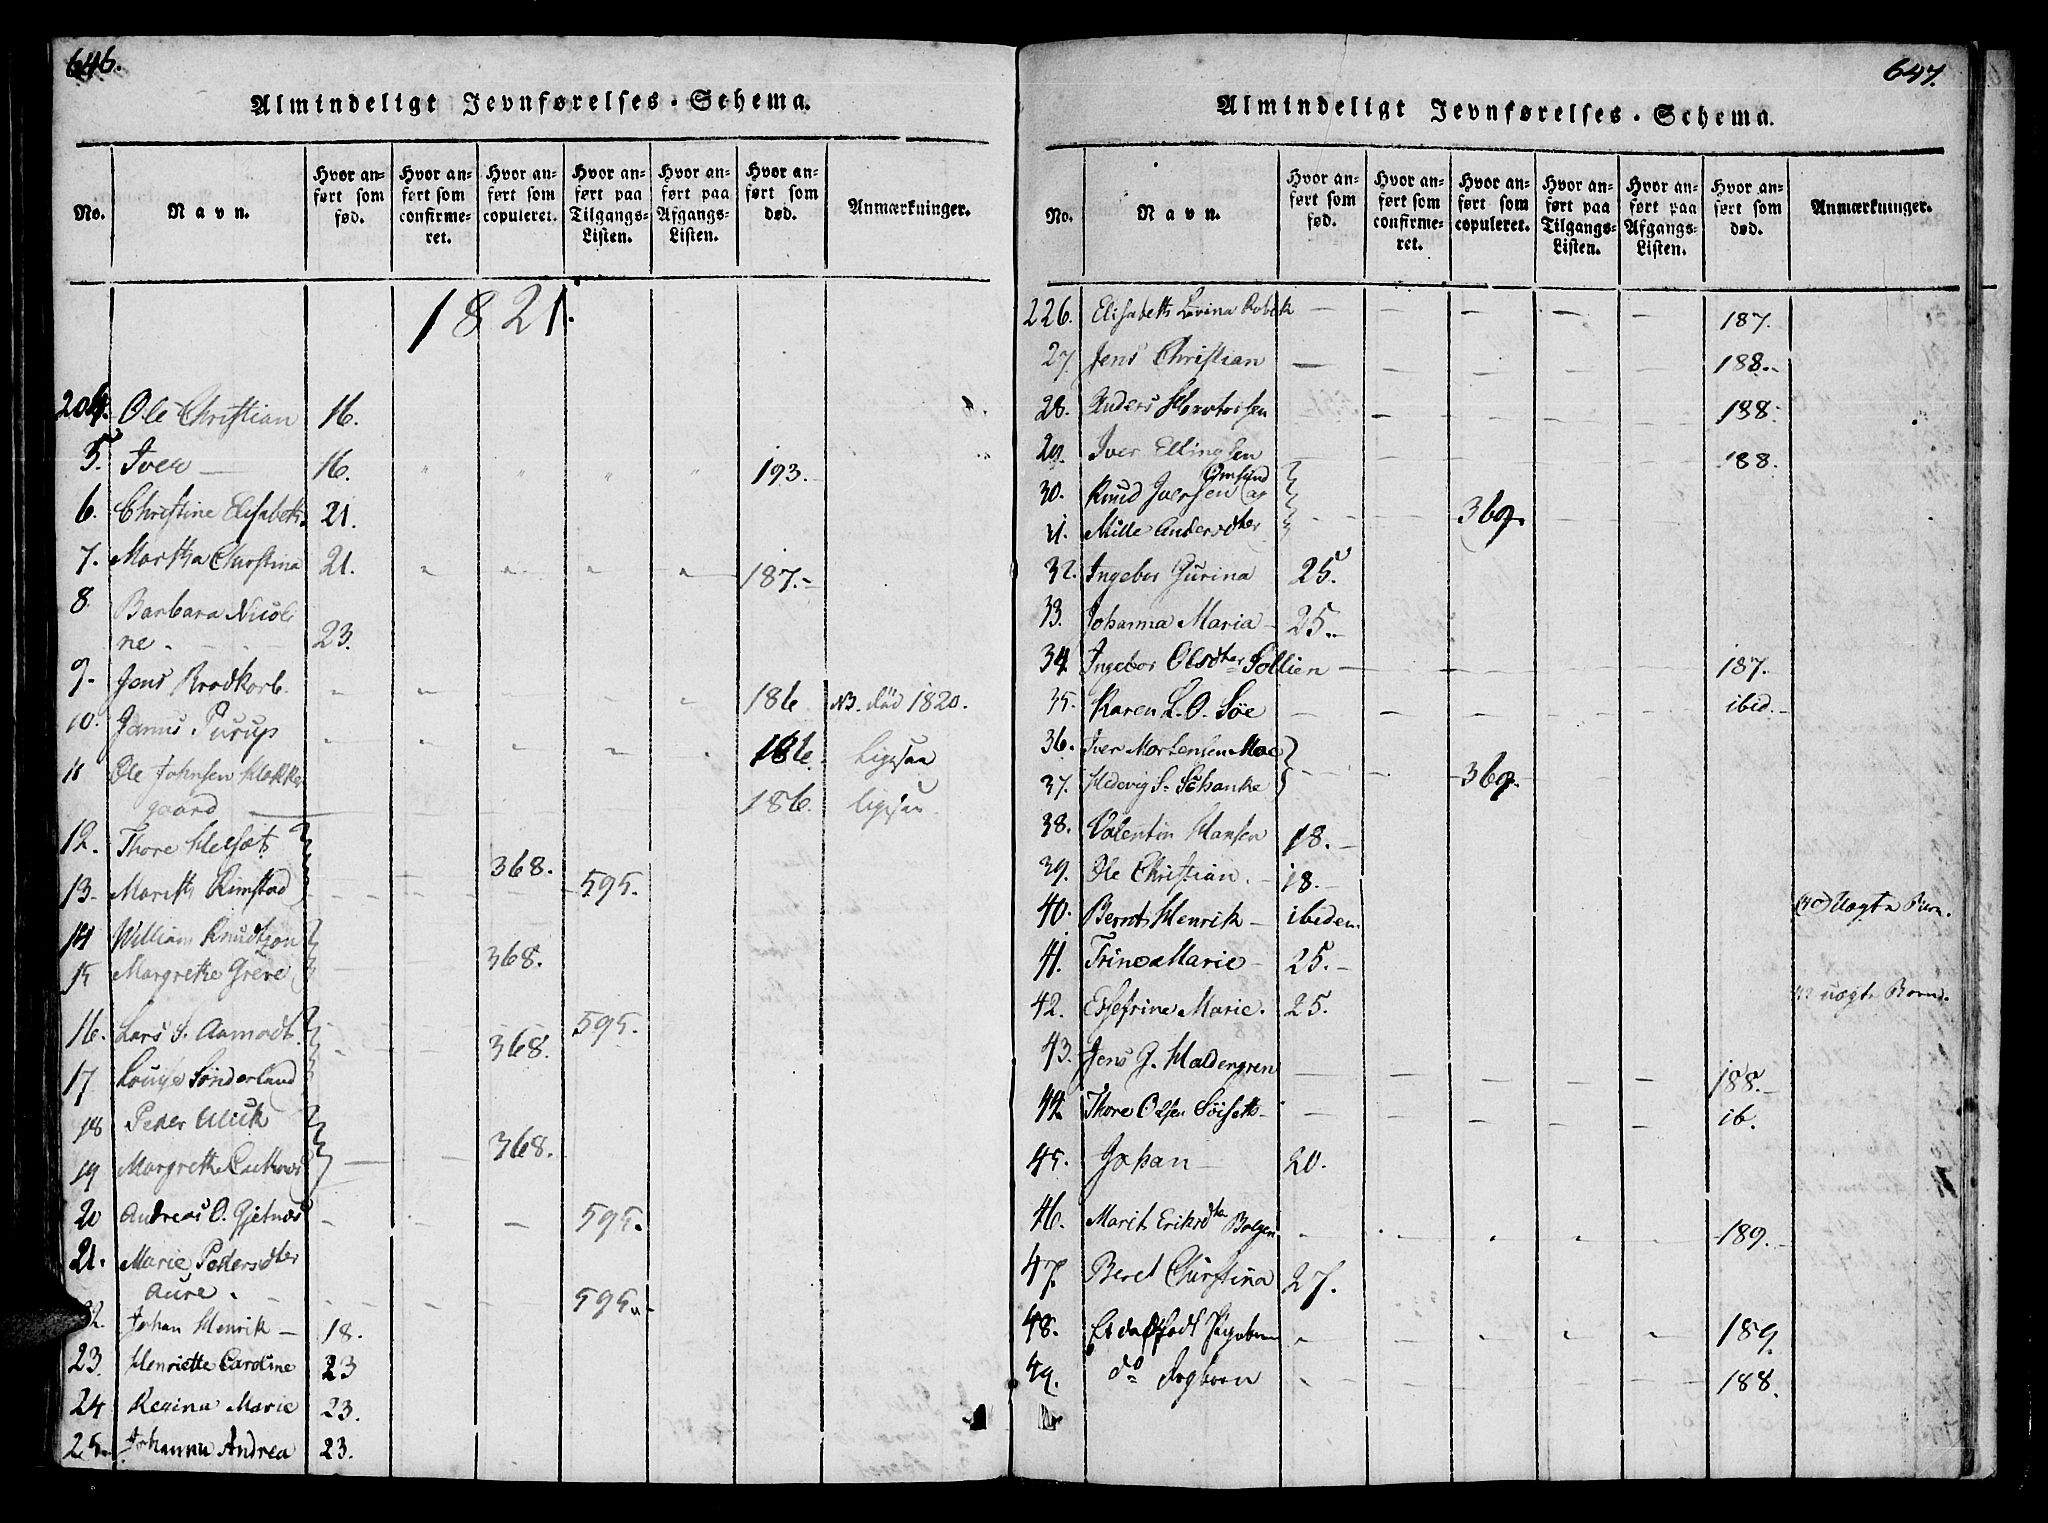 646.
Almindeligt Jevnførelses-Schema.
No.
Navn.
Hvor anført som fød.
Hvor anført som confirmeret.
Hvor anført som copuleret.
Hvor anført paa Tilgangs-Listen.
Hvor anført paa Afgangs-Listen.
Hvor anført som død.
Anmærkninger.
1821.
204. Ole Christian 16.
5. Iver 16. 193.
6. Christine Elisabeth 21.
7. Martha Christina 21. 187.
8. Barbara Nicoli
ne. 23.
9. Jens Brodkorb. 186 NB. död 1820.
10. Janus Purup 186. Ligesaa
11 Ole Johnsen Klokker
gaard 186. ligesaa
12. Thore Helset 368.
13. Marith Rimstad 595.
14 William Knudtzon 368.
15 Margrethe Greve
16. Lars S. Aamodt. 368. 595.
17 Louise Sönderland
18 Peder Ulick 368.
19 Margrethe
20 Andreas O. Gjetnæs 595.
21. Marie Pedersdter
Aure. 595.
22. Johan Henrik 18.
23. Henriette Cardine 23
24 Regina Marie 23.
25. Johanna Andrea 23.
647.
Almindeligt Jevnførelses-Schema.
No.
Navn.
Hvor anført som fød.
Hvor anført som confirmeret.
Hvor anført som copuleret.
Hvor anført paa Tilgangs-Listen.
Hvor anført paa Afgangs-Listen.
Hvor anført som død.
Anmærkninger.
226. Elisabeth Lovina Robek 187.
27. Jens Christian 188.
28. Anders 188.
29. Iver Ellingsen 188.
30. Knud Iversen Omsund ag 369.
31. Mille Andersdter
32. Ingebor Gurina 25.
33. Johanna Maria 25.
34 Ingebor Olsdter Sollien 187.
35. Karen L. O. Söe ibid.
36. Iver Mortensen Moe 369.
37. Hedevig S. Schanke
38. Valentin Hansen 18.
39. Ole Christian. 18.
40. Bernt Henrik ibidem (40) Uægte Barn.
41. Trine Marie 25.
42. Essefrine Marie. 25. 42 uægte Barn.
43. Jens G. Haldengren 188.
44. Thore Olsen Söiseth ib.
45. Johan 20.
46. Marit Eriksdter Bolgen 189.
47. Beret Christina 27.
48. Et dödfödt Pigebarn 189.
49. do 188.